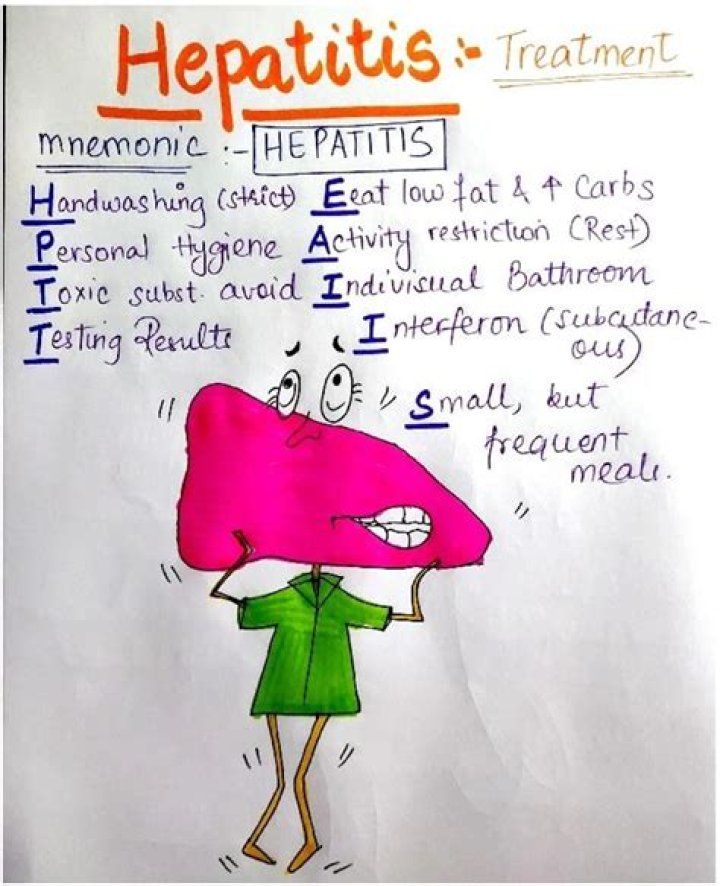 Hepatitis :- Treatment
mnemonic :- HEPATITIS
Handwashing (strict) Eeat low fat & ↑ Carbs
Personal Hygiene Activity restriction (Rest)
Toxic subst. avoid Indivisual Bathroom
Testing Results Interferon (subcutane-
ous)
Small, but
frequent
meals.